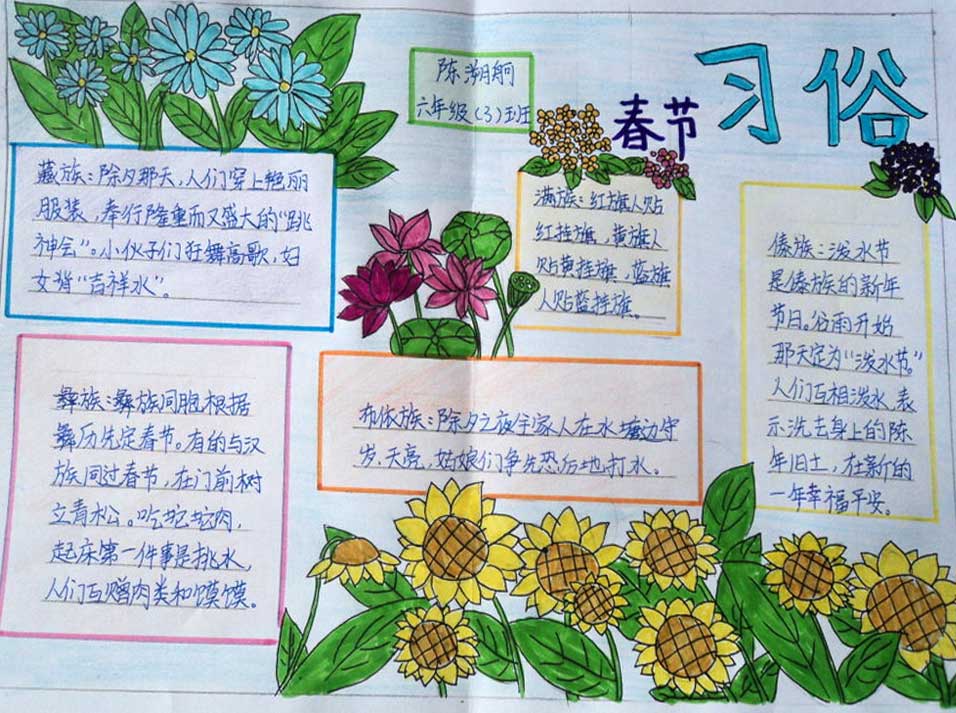 春节 习俗
陈湖舸
六年级(3)班
藏族:除夕那天,人们穿上艳丽
服装,奉行隆重而又盛大的“跳
神会”。小伙子们狂舞高歌,妇
女背“吉祥水”。
彝族:彝族同胞根据
彝历先定春节。有的与汉
族同过春节,在门前树
立青松。吃坨坨肉,
起床第一件事是挑水,
人们互赠肉类和馍馍。
满族:红旗人贴
红挂旗,黄旗人
贴黄挂旗,蓝旗
人贴蓝挂旗。
布依族:除夕之夜全家人在水塘边守
岁,天亮,姑娘们争先恐后地打水。
傣族:泼水节
是傣族的新年
节日。谷雨开始
那天定为“泼水节”
人们互相泼水,表
示洗去身上的陈
年旧土,在新的
一年幸福平安。